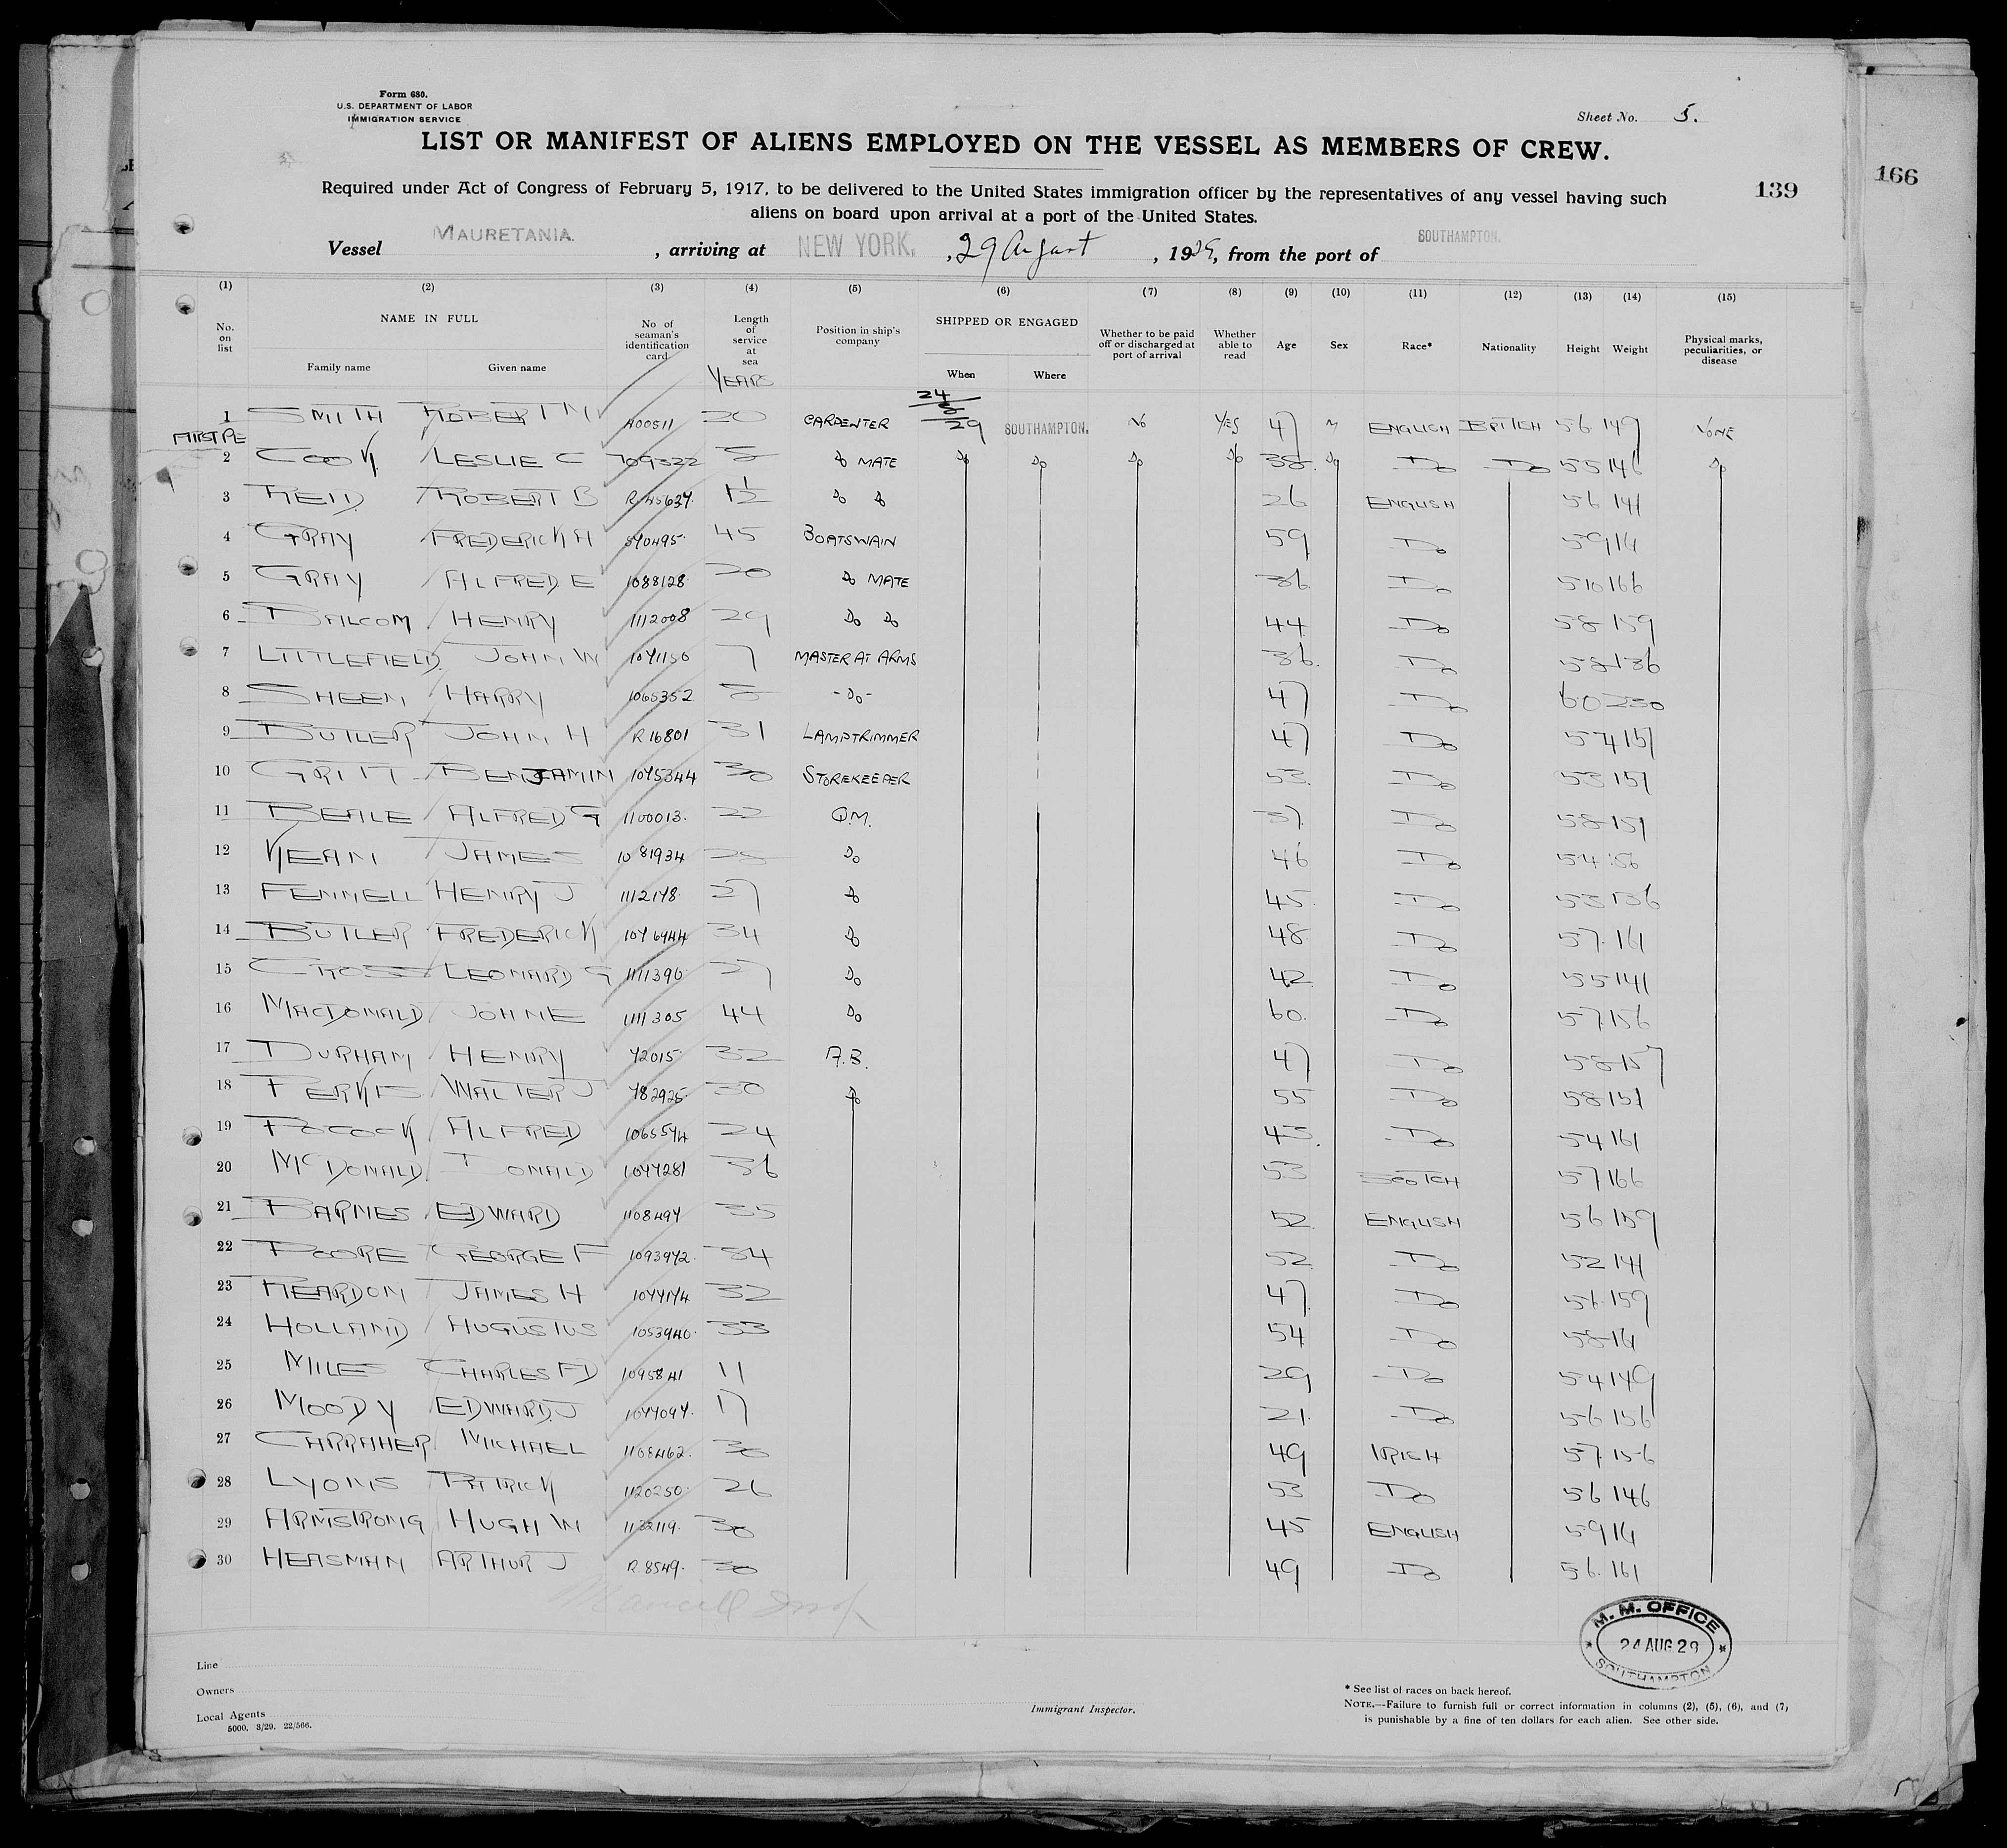 Form 680.
U.S. DEPARTMENT OF LABOR
IMMIGRATION SERVICE
Sheet No. 5.
LIST OR MANIFEST OF ALIENS EMPLOYED ON THE VESSEL AS MEMBERS OF CREW.
Required under Act of Congress of February 5, 1917, to be delivered to the United States immigration officer by the representatives of any vessel having such
aliens on board upon arrival at a port of the United States.
139
166
Vessel MAURETANIA , arriving at NEW YORK. , 29 August , 1929, from the port of SOUTHAMPTON.
(1) (2) (3) (4) (5) (6) (7) (8) (9) (10) (11) (12) (13) (14) (15)
No. on list NAME IN FULL Family name Given name No of seaman's identification card Length of service at sea YEARS Position in ship's company SHIPPED OR ENGAGED When Where Whether to be paid off or discharged at port of arrival Whether able to read Age Sex Race* Nationality Height Weight Physical marks, peculiarities, or disease
1 SMITH ROBERT M 400511 20 CARPENTER 24/8/29 SOUTHAMPTON. NO YES 47 M ENGLISH BRITISH 56 149 NONE
2 COOK LESLIE C 709322 Do MATE Do Do Do Do 38 Do Do Do 55 146 Do
3 REID ROBERT B R.45637 1½ Do Do 26 ENGLISH 56 141
4 GRAY FREDERICK H 840495 45 BOATSWAIN 59 Do 59
5 GRAY ALFRED E 1088128 20 Do MATE 36 Do 510 166
6 BALCOM HENRY 1112008 29 Do Do 44 Do 58 159
7 LITTLEFIELD JOHN W 1041156 7 MASTER AT ARMS 36 Do 58 136
8 SHEEN HARRY 1065352 -Do- 47 Do 60 230
9 BUTLER JOHN H R 16801 31 LAMPTRIMMER 47 Do 57 151
10 BENJAMIN 1045344 30 STOREKEEPER 53 Do 53 151
11 BEALE ALFRED G 1100013 22 Q.M. 37 Do 58 151
12 KEAN JAMES 1081934 Do 46 Do 54 156
13 FENNELL HENRY J 1112178 27 Do 45 Do 53 136
14 BUTLER FREDERICK 1076944 34 Do 48 Do 57 161
15 CROSS LEONARD G 1111396 27 Do 42 Do 55 141
16 MACDONALD JOHN E 1111305 44 Do 60 Do 57 156
17 DURHAM HENRY 72015 32 A.B. 47 Do 58 157
18 PERKIS WALTER J 782925 30 Do 55 Do 58 151
19 POCOCK ALFRED 1065574 24 43 Do 54 161
20 McDONALD DONALD 1047281 36 53 SCOTCH 57 166
21 BARNES EDWARD 1108497 35 52 ENGLISH 56 159
22 POORE GEORGE F 1093972 34 52 Do 52 141
23 REARDON JAMES H 1044174 32 47 Do 56 159
24 HOLLAND AUGUSTUS 1053940 33 54 Do 58
25 MILES CHARLES F D 1095841 11 29 Do 54 149
26 MOODY EDWARD J 1047097 17 21 Do 56 156
27 CARRAHER MICHAEL 1108462 30 49 IRISH 57 156
28 LYONS PATRICK 1120250 26 53 Do 56 146
29 ARMSTRONG HUGH W 1132119 30 45 ENGLISH 59
30 HEASMAN ARTHUR J R.8549 30 49 Do 56 161
M. M. OFFICE
24 AUG 29
SOUTHAMPTON
Line
Owners
Local Agents
5000. 3/29. 22/566.
Immigrant Inspector.
* See list of races on back hereof.
NOTE.—Failure to furnish full or correct information in columns (2), (5), (6), and (7),
is punishable by a fine of ten dollars for each alien. See other side.